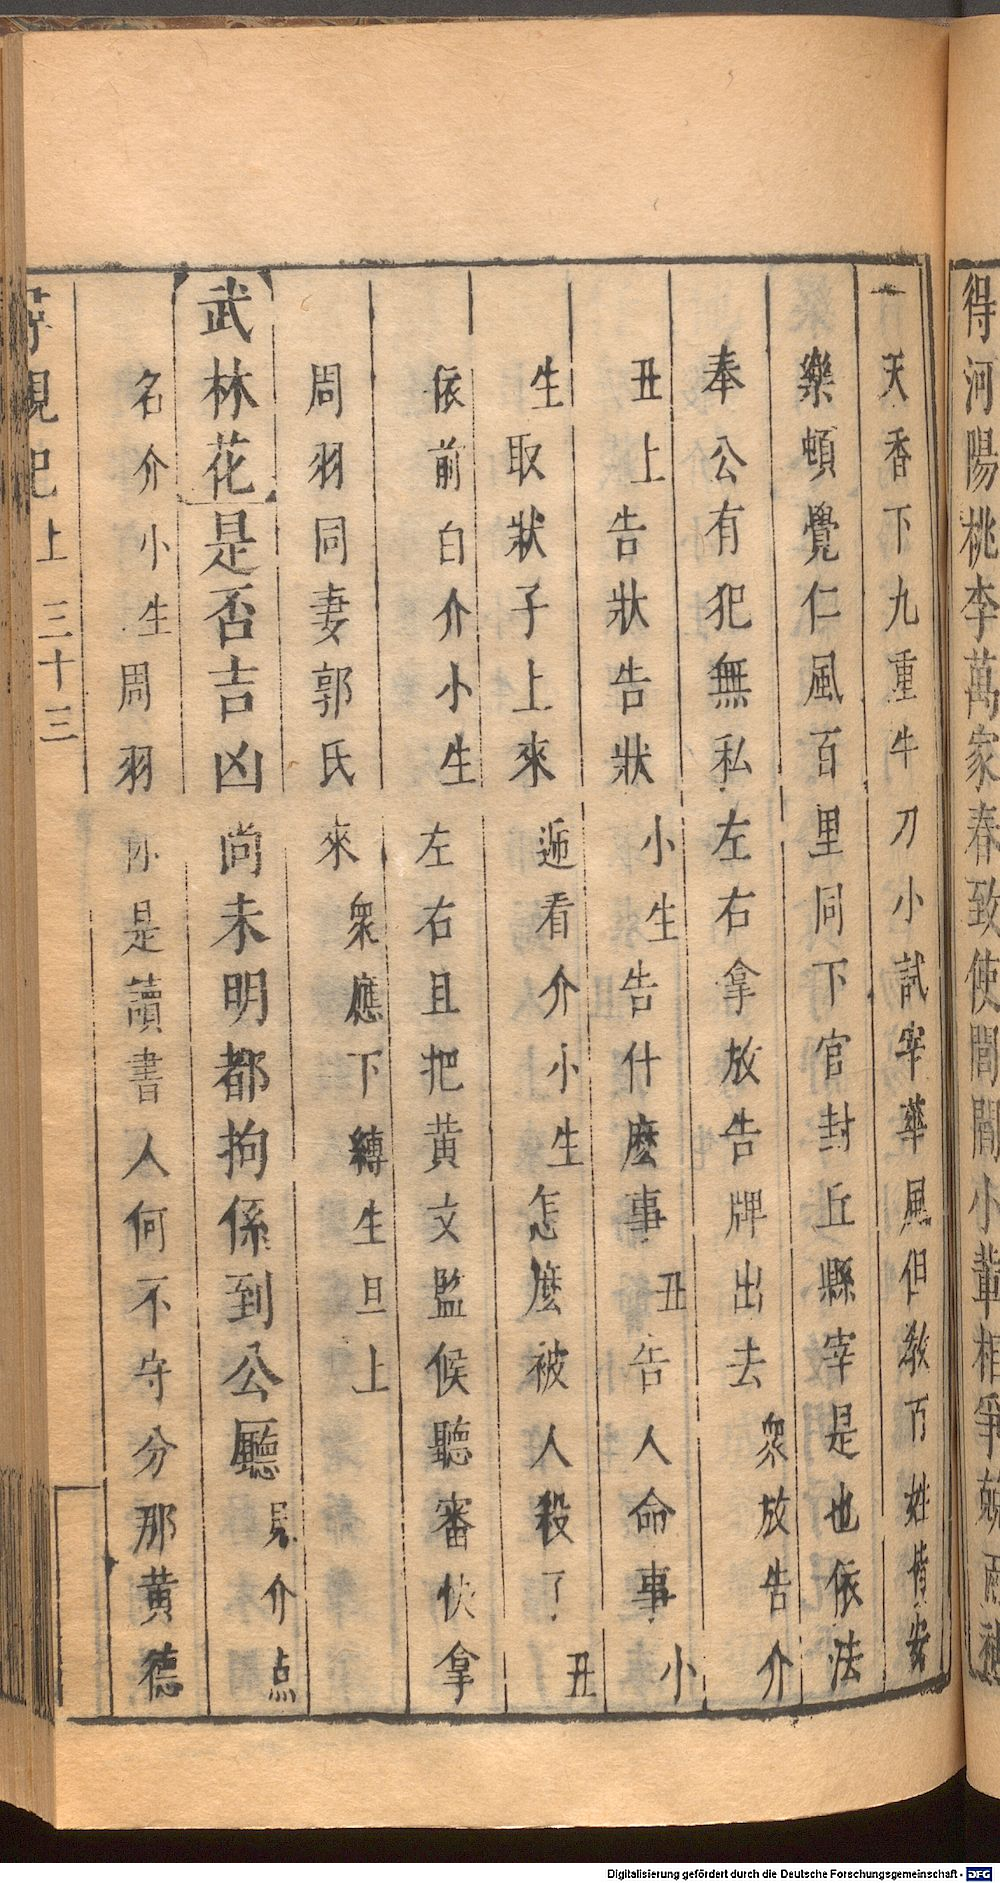 得河陽桃李萬家春致使閭閻小輩相爭兢雨禑
天香下九重牛刀小試宰華風但敎百姓偕安
樂頓覺仁風百里同下官封丘縣宰是也依法
奉公有犯無私左右拿放告牌出去衆放告介
丑上告狀告狀小生告什麽事丑告人命事小
生取狀子上來遞看介小生怎麽被人殺了丑
依前白介小生左右且把黄文監候聽審快拿
周羽同妻郭氏來衆應下縛生旦上
武林花是否吉凶尚未明都拘係到公廳見介点
名介小生周羽你是讀書人何不守分那黄德
尋親記上 三十三
Digitalisierung gefördert durch die Deutsche Forschungsgemeinschaft - DFG